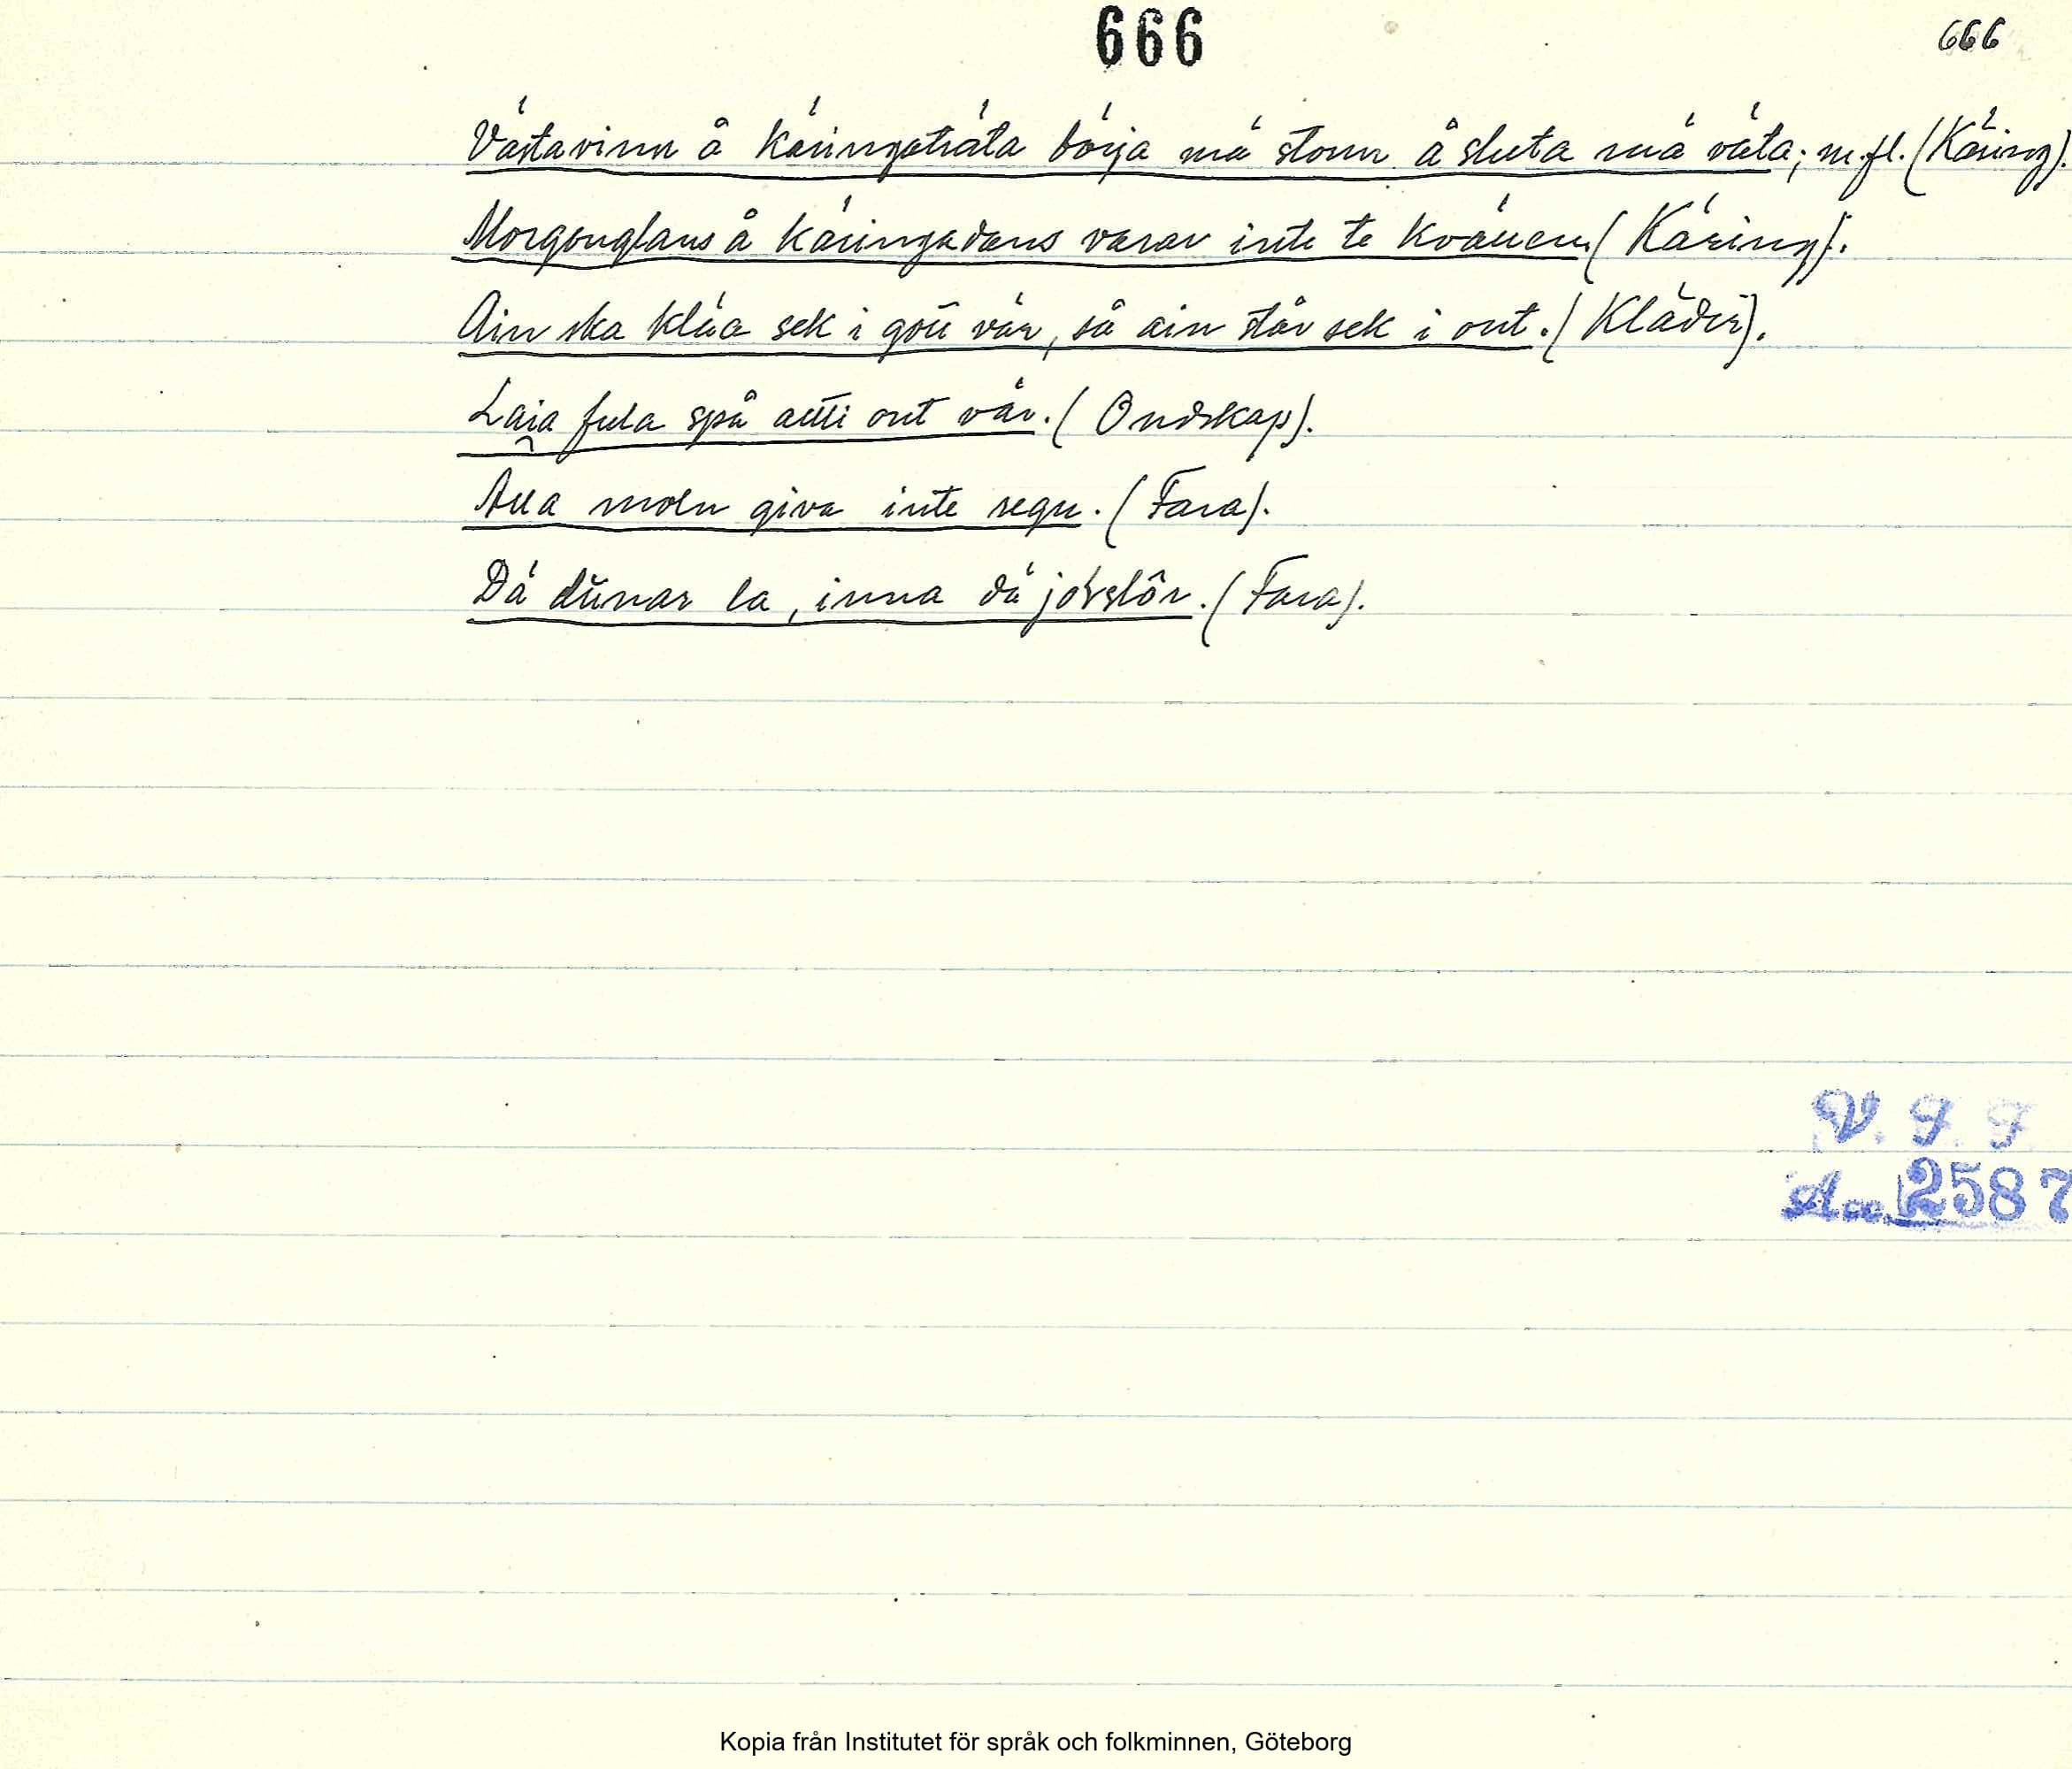 666
666
Västavinn å käringaträta börja mä storm å sluta mä väta; m.fl. (Käring).
Morgonglans å käringadans varar inte te kvällen (Käring).
Ain ska kläa sek i gott vär, så ain står sek i ont. (Kläder).
Laia fula spå allti ont vär. (Ondskap).
Alla moln giva inte regn. (Fara).
Dä dunar la, inna dä jorslår. (Fara).
V. F. F.
Acc. 2587
Kopia från Institutet för språk och folkminnen, Göteborg